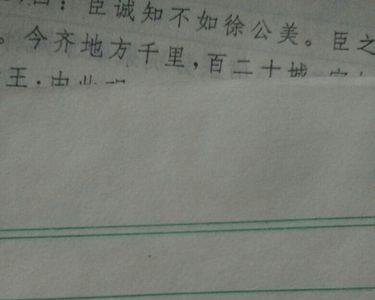 曰：臣诚知不如徐公美。臣之
。今齐地方千里，百二十城
王